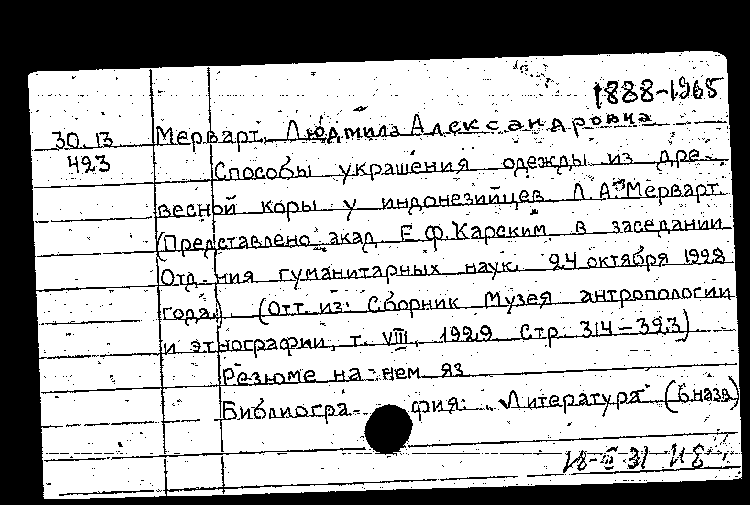 1888-1965
30.13 Мерварт, Людмила Александровна
423 Способы украшения одежды из дре-
весной коры у индонезийцев Л. А. Мерварт.
(Представлено акад. Е.Ф. Карским в заседании
Отд-ния гуманитарных наук 24 октября 1928
года.) (Отт. из: Сборник Музея антропологии
и этнографии, т. VIII, 1929 Стр. 314-323)
Резюме на нем. яз.
Библиография: "Литература" (6 назв)